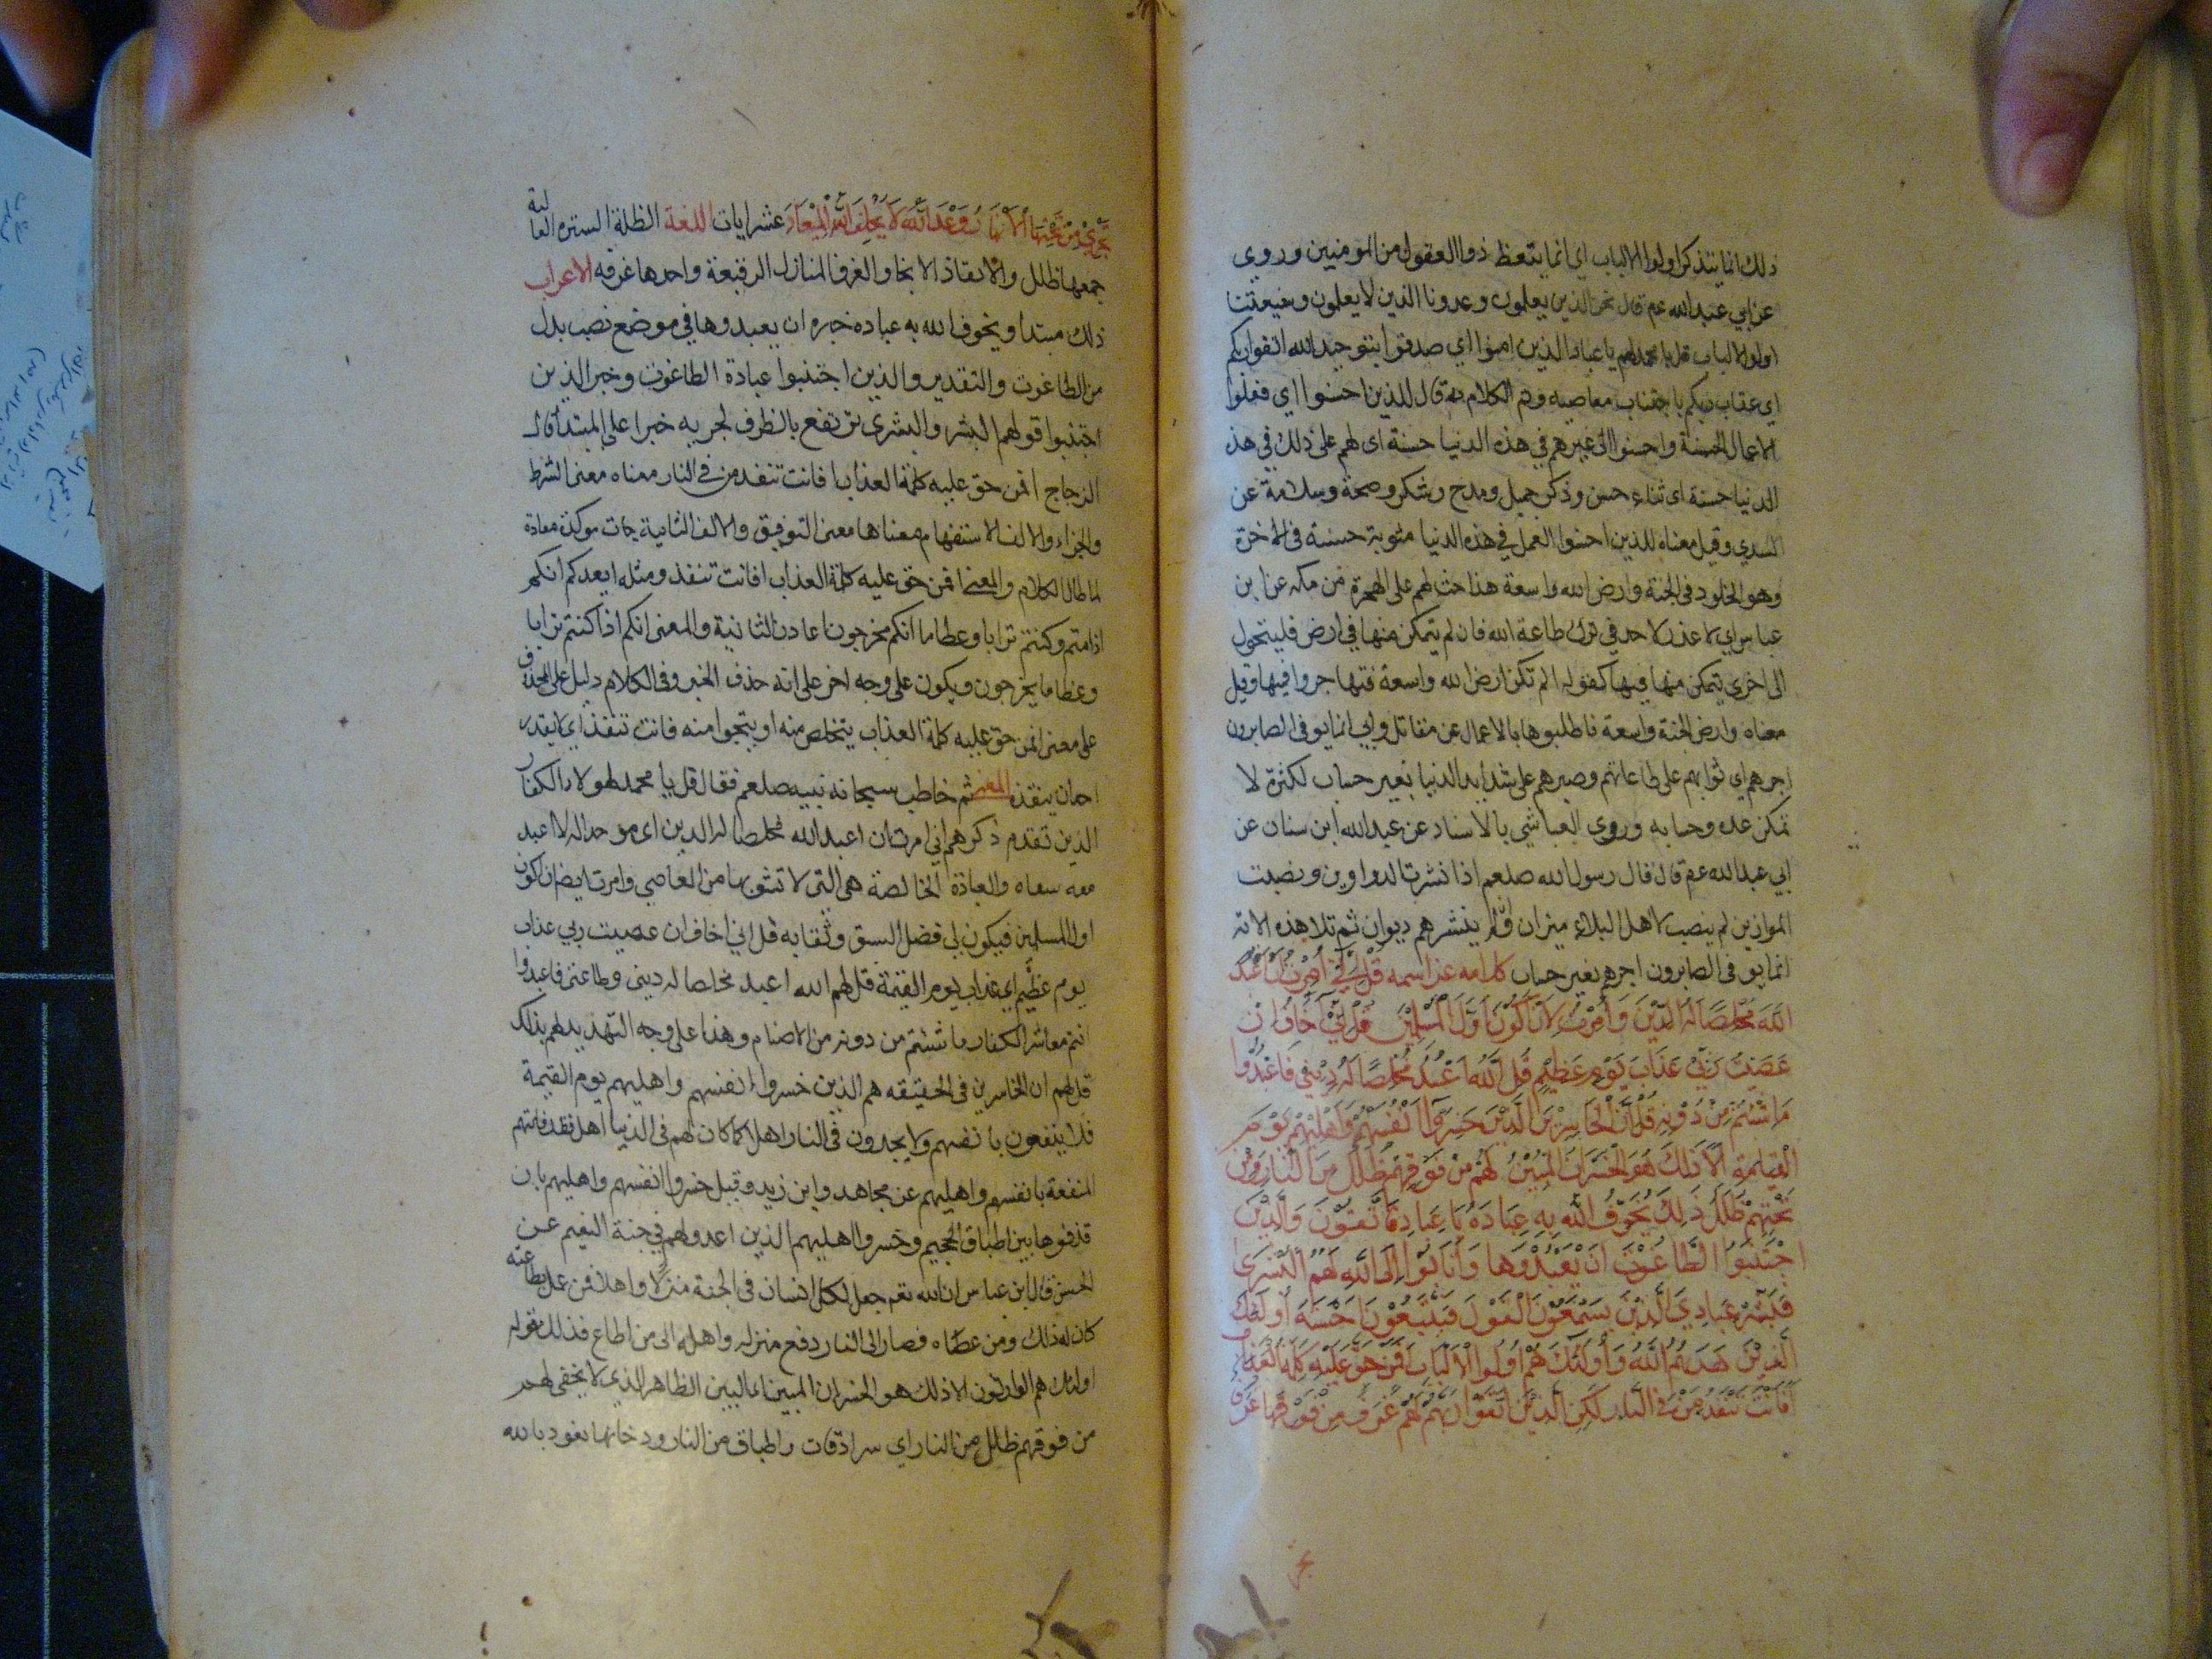 ذلك انما يتذكر اولوا الالباب اي انما يتعظ ذوا العقول من المومنين وروى
عن ابي عبد الله عم قال نحن الذين يعلمون وعدونا الذين لا يعلمون وشيعتنا
اولوا الالباب قل يا محمد لهم يا عباد الذين امنوا اي صدقوا بتوحيد الله اتقوا ربكم
اي عقاب ربكم باجتناب معاصيه وتم الكلام ثم قال للذين احسنوا اي فعلوا
الاعمال الحسنة واحسنوا الى غيرهم في هذه الدنيا حسنة اى لهم على ذلك في هذ
الدنيا حسنة اى ثناء حسن وذكر جميل ومدح وشكر وصحة وسلامة عن
السدي وقيل معناه للذين احسنوا العمل في هذه الدنيا مثوبة حسنة فى الاخرة
وهو الخلود فى الجنة وارض الله واسعة هذا حث لهم على الهجرة من مكه عن ابن
عباس اي لا عذر لاحد في ترك طاعة الله فان لم يتمكن منها في ارض فليتحول
الى اخرى يتمكن منها فيها كقوله الم تكن ارض الله واسعة فتهاجروا فيها وقيل
معناه وارض الجنة واسعة فاطلبوها بالاعمال عن مقاتل وابي انما يوفى الصابرون
اجرهم اي ثوابهم على طاعاتهم وصبرهم على شدايد الدنيا بغير حساب لكثرة لا
تمكن عده وحسابه وروى العياشي بالاسناد عن عبد الله ابن سنان عن
ابي عبد الله عم قال قال رسول الله صلعم اذا نشرت الدواوين ونصبت
الموازين لم ينصب لاهل البلاء ميزان ولم ينشر لهم ديوان ثم تلا هذه الاية
انما يوفى الصابرون اجرهم بغير حساب كلامه عز اسمه قُلْ اِنِّي اُمِرْتُ اَنْ اَعْبُدَ
اللّٰهَ مُخْلِصًا لَهُ الدِّيْنَ وَاُمِرْتُ لِاَنْ اَكُوْنَ اَوَّلَ الْمُسْلِمِيْنَ قُلْ اِنِّيْ اَخَافُ اِنْ
عَصَيْتُ رَبِّيْ عَذَابَ يَوْمٍ عَظِيْمٍ قُلِ اللّٰهَ اَعْبُدُ مُخْلِصًا لَهُ دِيْنِي فَاعْبُدُوا
مَا شِئْتُمْ مِنْ دُوْنِهِ قُلْ اِنَّ الْخَاسِرِيْنَ الَّذِيْنَ خَسِرُوْا اَنْفُسَهُمْ وَاَهْلِيْهِمْ يَوْمَ
الْقِيٰمَةِ اَلَا ذٰلِكَ هُوَ الْخُسْرَانُ الْمُبِيْنُ لَهُمْ مِنْ فَوْقِهِمْ ظُلَلٌ مِنَ النَّارِ وَمِنْ
تَحْتِهِمْ ظُلَلٌ ذٰلِكَ يُخَوِّفُ اللّٰهُ بِهِ عِبَادَهُ يَا عِبَادِ فَاتَّقُوْنِ وَالَّذِيْنَ
اجْتَنَبُوْا الطَّاغُوْتَ اَنْ يَعْبُدُوْهَا وَاَنَابُوْا اِلَى اللّٰهِ لَهُمُ الْبُشْرَى
فَبَشِّرْ عِبَادِيَ الَّذِيْنَ يَسْتَمِعُوْنَ الْقَوْلَ فَيَتَّبِعُوْنَ اَحْسَنَهُ اُولٰئِكَ
الَّذِيْنَ هَدٰيهُمُ اللّٰهُ وَاُولٰئِكَ هُمْ اُولُوا الْاَلْبَابِ اَفَمَنْ حَقَّ عَلَيْهِ كَلِمَةُ الْعَذَابِ
اَفَاَنْتَ تُنْقِذُ مَنْ فِي النَّارِ لٰكِنِ الَّذِيْنَ اتَّقَوْا رَبَّهُمْ لَهُمْ غُرَفٌ مِنْ فَوْقِهَا غُرَفٌ
تَجْرِيْ مِنْ تَحْتِهَا الْاَنْهَارُ وَعْدَ اللّٰهِ لَا يُخْلِفُ اللّٰهُ الْمِيْعَادَ عشر ايات اللغة الظلة السترة العالية
جمعها ظلل والانقاذ الانجا والغرف المنازل الرفيعة واحدها غرفه الاعراب
ذلك مبتدا ويخوف الله به عباده خبره ان يعبدوها في موضع نصب بدل
من الطاغوت والتقدير والذين اجتنبوا عبادة الطاغوت وخبر الذين
اجتنبوا قولهم البشر والبشرى ترتفع بالظرف لجريه خبرا على المبتدأ قال
الزجاج افمن حق عليه كلمة العذاب افانت تنقذ من في النار معناه معنى الشرط
والجزاء والالف الاستفهام معناها معنى التوقيق والالف الثانية جات موكدة معادة
لما طال الكلام والمعنى افمن حق عليه كلمة العذاب افانت تنقذ ومثله ايعدكم انكم
اذا متم وكنتم ترابا وعظاما انكم مخرجون اعاد ان الثانية والمعنى انكم اذا كنتم ترابا
وعظاما يخرجون ويكون على وجه اخر على انه حذف الخبر وفى الكلام دليل على المحذوف
على معنى افمن حق عليه كلمة العذاب يتخلص منه او ينجوا منه فانت تنقذ اي لا يقدر
احد ان ينقذه المعنى ثم خاطب سبحانه نبيه صلعم فقال قل يا محمد لهولاء الكفار
الذين تقدم ذكرهم اني امرت ان اعبد الله مخلصا له الدين اى موحدا له لا اعبد
معه سواه والعبادة الخالصة هى التى لا تشوبها من المعاصي وامرت ايضا ان اكون
اول المسلمين فيكون لي فضل السبق وثوابه قل اني اخاف ان عصيت ربي عذاب
يوم عظيم اي عذاب يوم القيمة قل لهم الله اعبد مخلصا له دينى وطاعتى فاعبدوا
انتم معاشر الكفار ما شئتم من دونه من الاصنام وهذا على وجه التهديد لهم بذلك
قل لهم ان الخاسرين فى الحقيقه هم الذين خسروا انفسهم واهليهم يوم القيمة
فلا ينتفعون بانفسهم ولا يجدون فى النار اهلا كما كان لهم فى الدنيا اهل فقد فاتتهم
المنفعة بانفسهم واهليهم عن مجاهد وابن زيد وقيل خسروا انفسهم واهليهم بان
قذفوها بين اطباق الجحيم وخسروا اهليهم الذين اعدوا لهم في جنة النعيم عن
الحسن قال ابن عباس ان الله تعم جعل لكل انسان فى الجنة منزلا واهلا فمن عمل بطاعته
كان له ذلك ومن عصاه فصار الى النار دفع منزله واهله الى من اطاع فذلك قوله
اولئك هم الوارثون الا ذلك هو الخسران المبين اي البين الظاهر الذي لا يخفى لهم
من فوقهم ظلل من النار اي سرادقات واطباق من النار ودخانها نعوذ بالله